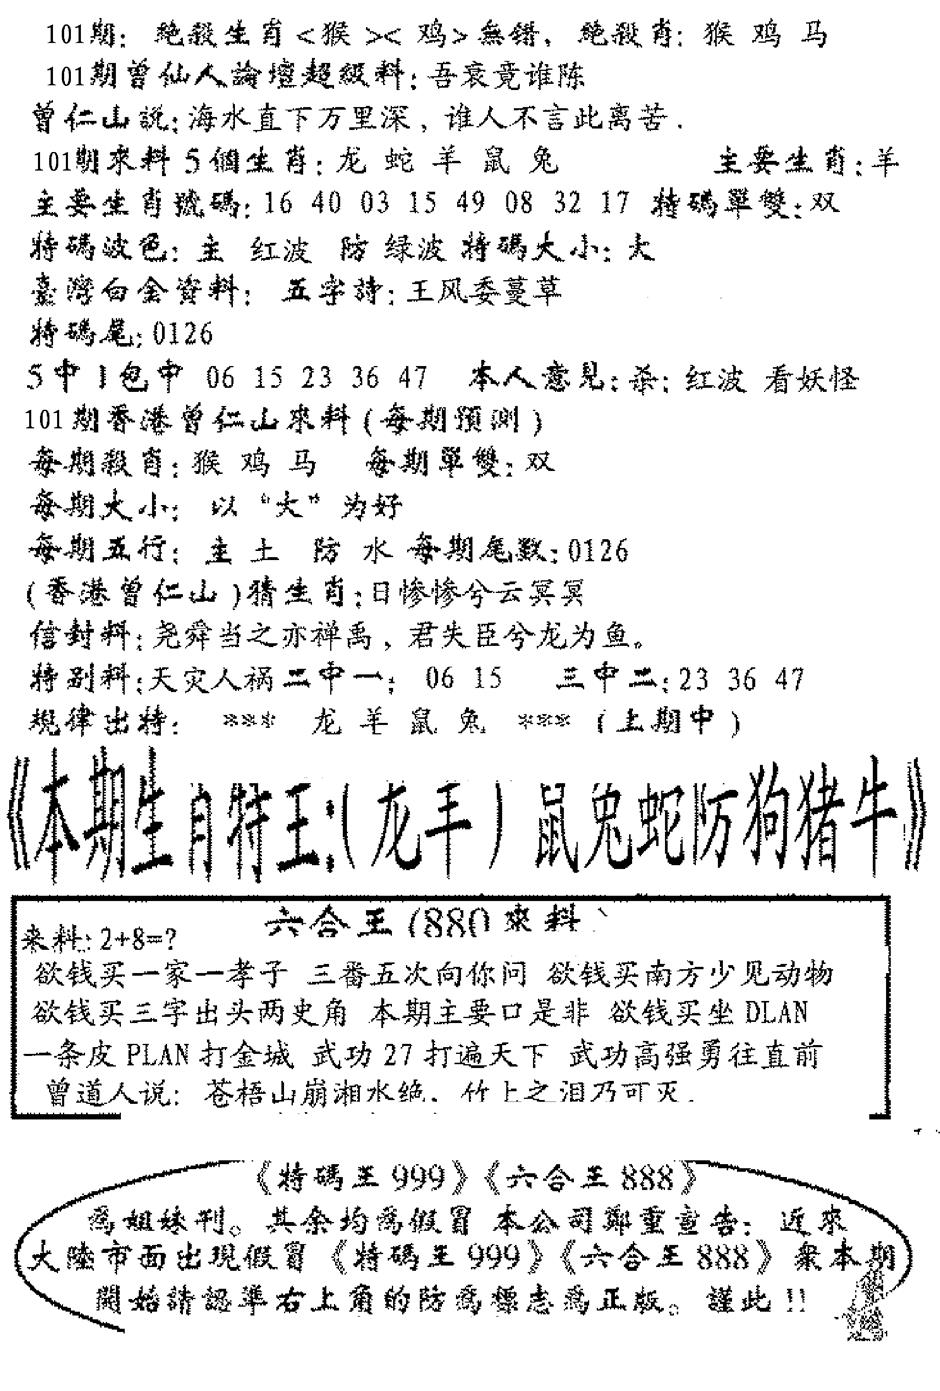 101期: 绝殺生肖<猴><鸡>無错, 绝殺肖: 猴 鸡 马
101期曾仙人論壇超級料:吾衰竟谁陈
曾仁山説:海水直下万里深, 谁人不言此离苦.
101期來料 5個生肖:龙 蛇 羊 鼠 兔 主要生肖:羊
主要生肖號碼:16 40 03 15 49 08 32 17 特碼單雙:双
特碼波色: 主 红波 防 绿波 特碼大小: 大
臺灣白金資料: 五字詩:王风委蔓草
特碼尾:0126
5中1包中 06 15 23 36 47 本人意見:杀: 红波 看妖怪
101期香港曾仁山來料(每期預測)
每期殺肖:猴 鸡 马 每期單雙:双
每期大小: 以“大”为好
每期五行: 主 土 防 水 每期尾数:0126
(香港曾仁山)猜生肖:日惨惨兮云冥冥
信封料:尧舜当之亦禅禹, 君失臣兮龙为鱼。
特别料:天灾人祸二中一: 06 15 三中二:23 36 47
規律出特: *** 龙 羊 鼠 兔 *** (上期中)
《本期生肖特王:(龙羊)鼠兔蛇防狗猪牛》
六合王(88()來料
来料:2+8=?
欲钱买一家一孝子 三番五次向你问 欲钱买南方少见动物
欲钱买三字出头两史角 本期主要口是非 欲钱买坐 DLAN
一条皮 PLAN 打金城 武功 27 打遍天下 武功高强勇往直前
曾道人说: 苍梧山崩湘水绝. 竹上之泪乃可灭.
《特碼王 999》《六合王 888》
為姐妹刊。其余均為假冒 本公司鄭重宣告: 近來
大陸市面出現假冒《特碼王 999》《六合王 888》 衆本期
開始請認準右上角的防為標志為正版。謹此!!